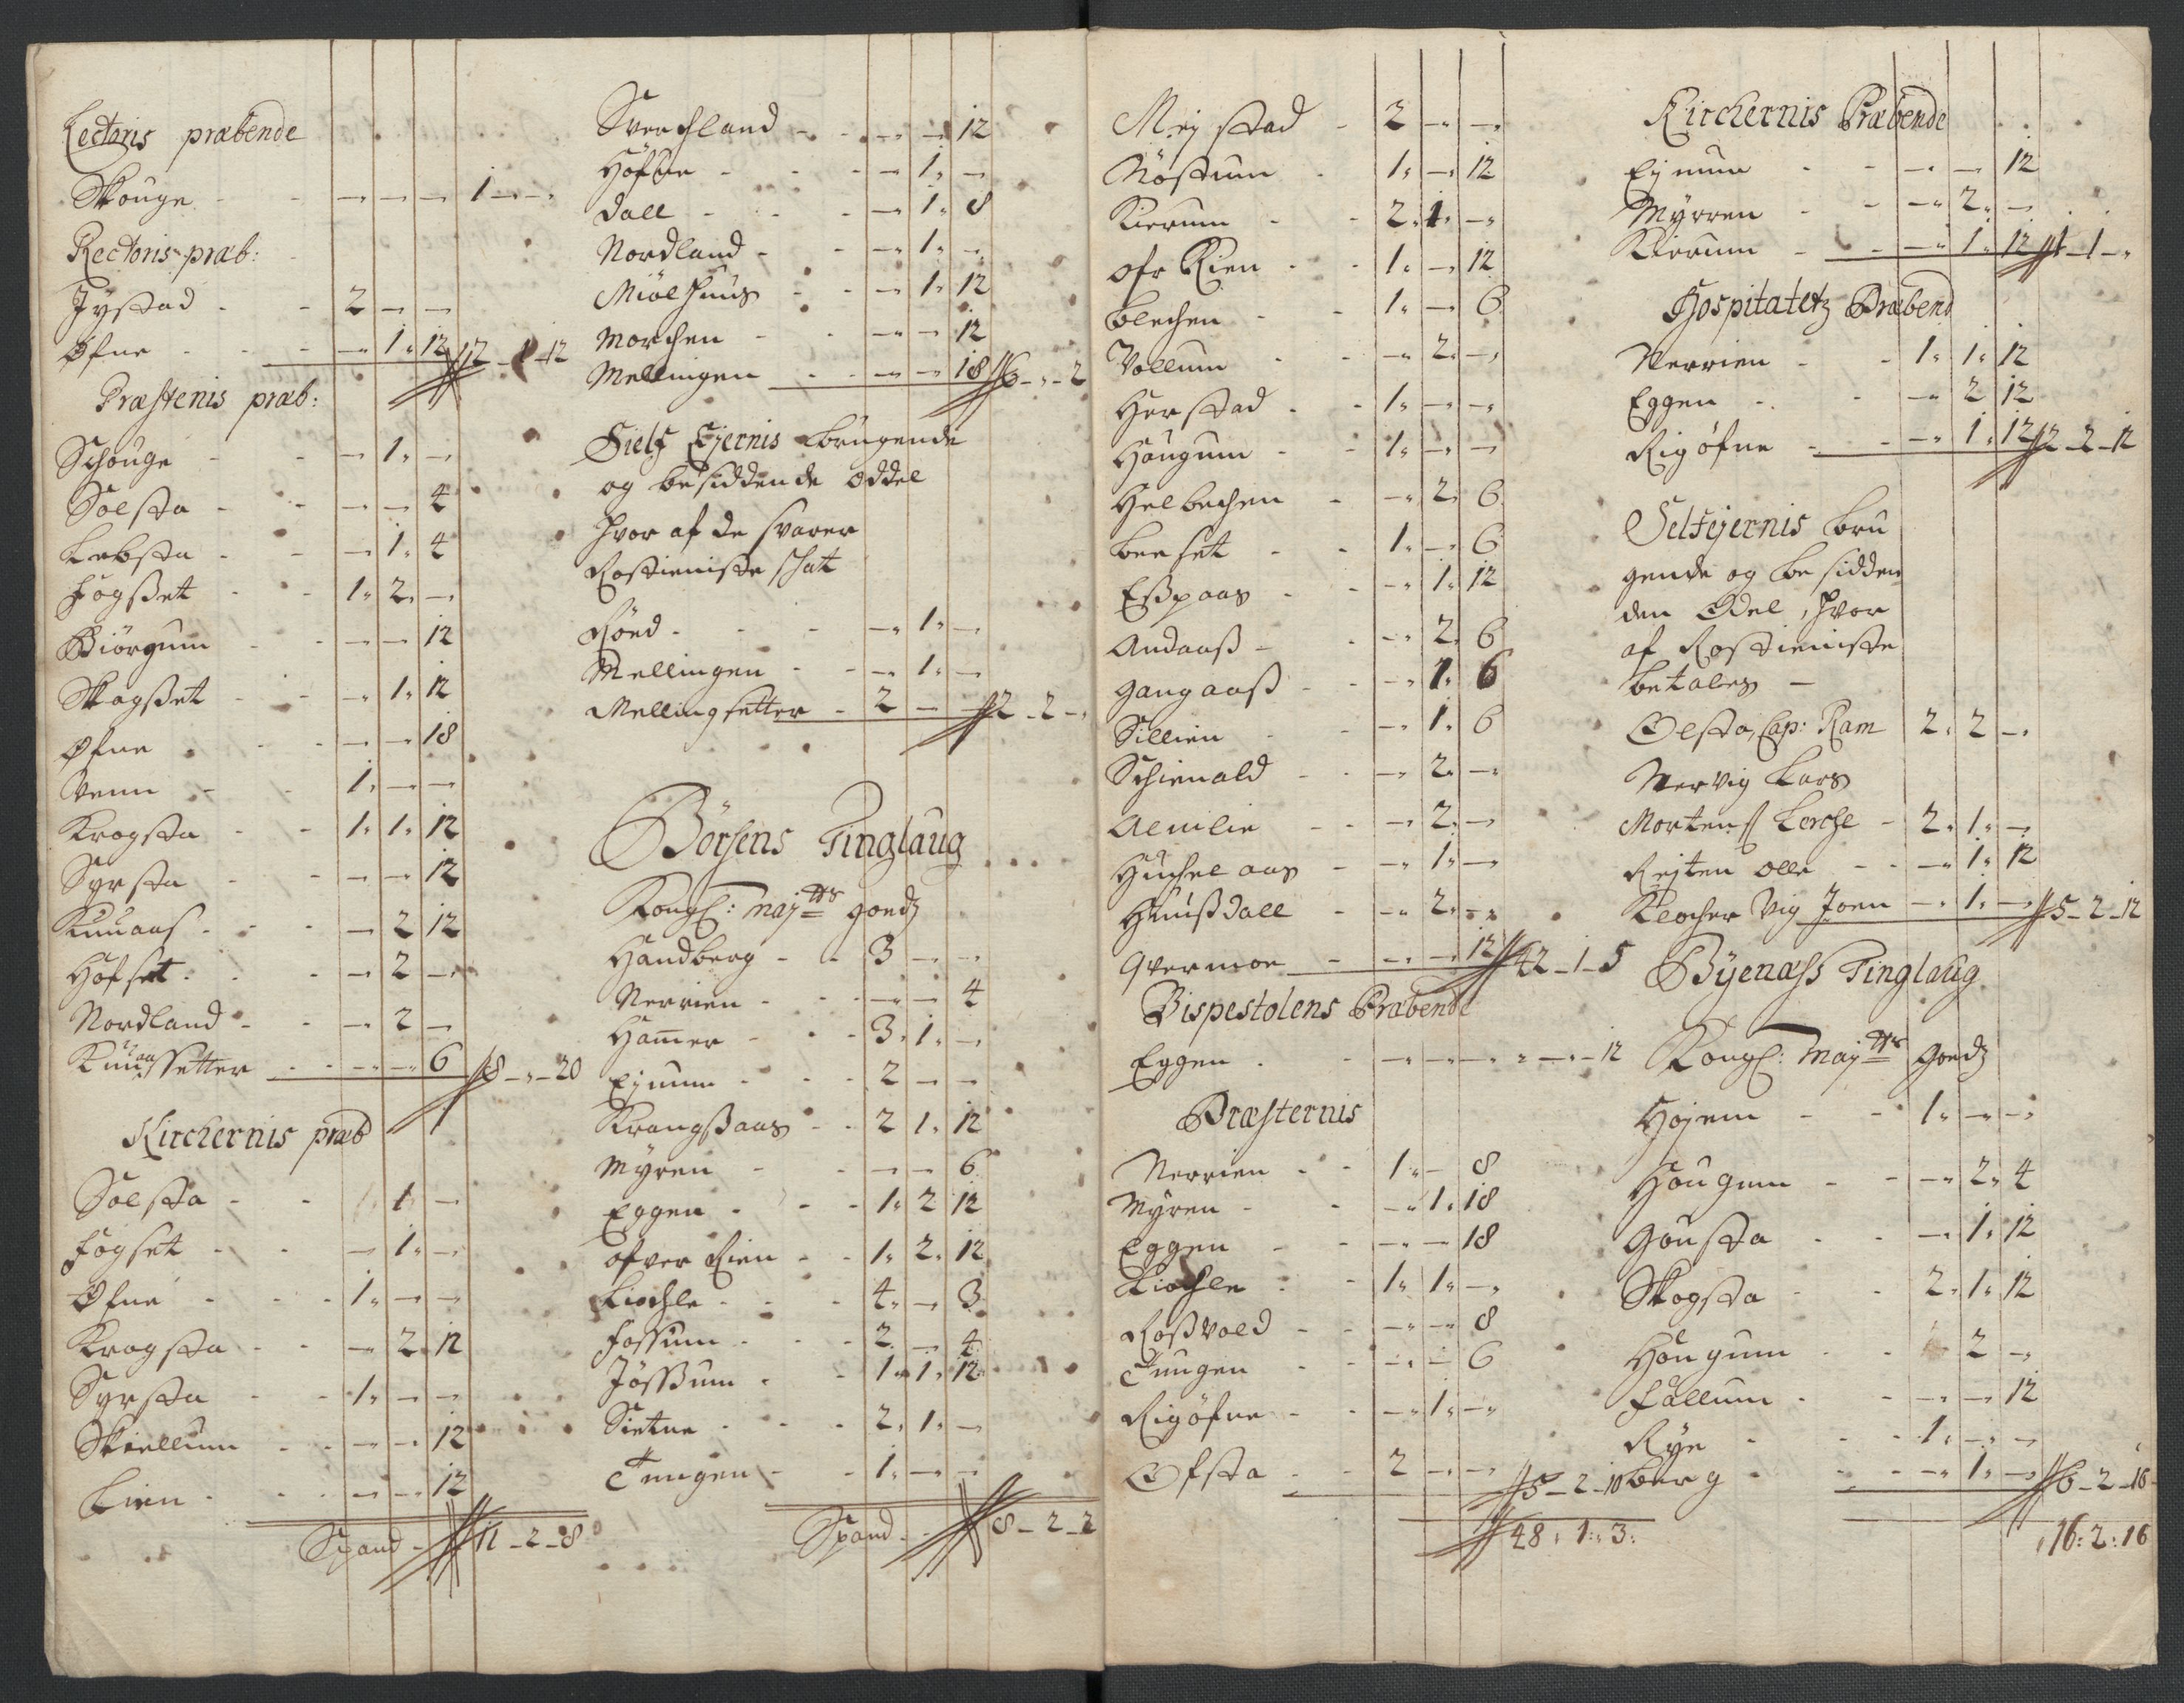 Lectoris præbende
Skouge - - - - 1 - -
Rectoris præb:
Jystad - - 2 - -
Øfne - - - 1 12 2 - 1 - 12
Præstenis præb:
Schouge - - - 1 -
Solsta - - - - 4
Lebsta - - - 1 4
Fogsset - - 1 2 -
Biörgum - - - 12
Skogsset - - - 1 12
Øfne - - - 18
Venn - - 1 - -
Krogsta - - 1 1 12
Syrsta - - - 12
Kuuaas - - - 2 12
Hofset - - - 2 -
Nordland - - - 2 -
Kuuaassetter - - - 6 8 - - 20
Kirchernis præb
Solsta - - 1 -
Fogset - - - 1 -
Øfne - - - 1 - -
Krogsta - - - 2 12
Syrsta - - 1 - -
Skiellum - - - - 12
Lien - - - - 12
Spand - 11 - 2 - 8
Suerchland - - - - 12
Höfne - - - 1 -
Dall - - - 1 8
Nordland - - - 1 -
Miölhuus - - - 1 12
Morchen - - - - 12
Mellingen - - - - 18 6 - - 2
Sielf Ejernis brugende
og besiddende oddel
hvor af de svarer
Rostieniste schat
Röed - - - - 1 -
Mellingen - - - 1 -
Mellingsetter - 2 - - 2 - 2 -
Börsens Tinglaug
Kongl: Maytts goedz
Handberg - - 3 - -
Nerrien - - - - 4
Hammer - - - 3 1 -
Ejnum - - - 2 - -
Krangssaas - - 2 1 12
Myren - - - - 6
Eggen - - - 1 2 12
ofver Rien - - 1 2 12
Kiochle - - - 4 - 3
Fossum - - - 2 - 4
Jössum - - 1 1 12
Sietne - - - 2 1 -
Tungen - - 1 - -
Spand - - 8 - 2 - 2
Mejstad - 2 - -
Nöstum - 1 - 12
Kierum - - 2 1 -
ofr Rien - - 1 - 12
Blechen - - 1 - 6
Vollum - - 2 -
Herstad - - 1 - -
Haugum - - 1 - -
Helbechen - - 2 6
Beeset - - 1 - 6
Esspaas - - - 1 12
Andaass - - - 2 6
Gangaass - - - 1 6
Sillien - - 1 6
Schienald - - - 2 -
Aenilie - - - 2 -
Huchelaas - - - 1 -
Hunssdall - - - 2 -
Gvermoe - - - 12 42 - 1 - 5
Bispestolens Præbende
Eggen - - - - - - 12
Præsternis
Nerrien - - 1 - 8
Myren - - - 1 18
Eggen - - - - 18
Kiochle - - 1 1 -
Rossvold - - - - 8
Tungen - - - - 6
Rigöfne - - - 1 -
Ofsta - - 2 - - 5 - 2 - 10
48 : 1 : 3 :
Kirchernis Præbende
Ejnum - - - - 12
Myrren - - - 2 -
Kierum - - - 1 12 1 - 1 -
Hospitaletz Præbend
Nerrien - - 1 1 12
Eggen - - - 2 12
Rigöfne - - - 1 12 2 - 2 - 12
Selfejernis bru
gende og besidden
den Odel, hvor
af Rostieniste
betales -
Oelsta, Cap: Ram 2 2 -
Nervig Lars
Mortens Lerche - 2 1 -
Rejten Olle - - - 1 12
Klocher Vig Joen - 1 - 5 - 2 - 12
Byenæss Tinglaug
Kongl: Maytts Goedz
Hojem - - 1 - -
Hougum - - - 2 4
Gousta - - - 1 12
Skogsta - - 2 1 12
Hougum - - 2 -
Fallum - - - - 12
Rye - - - 1 - -
Berg - - - - 1 - 6 - 2 - 16
16 : 2 : 16